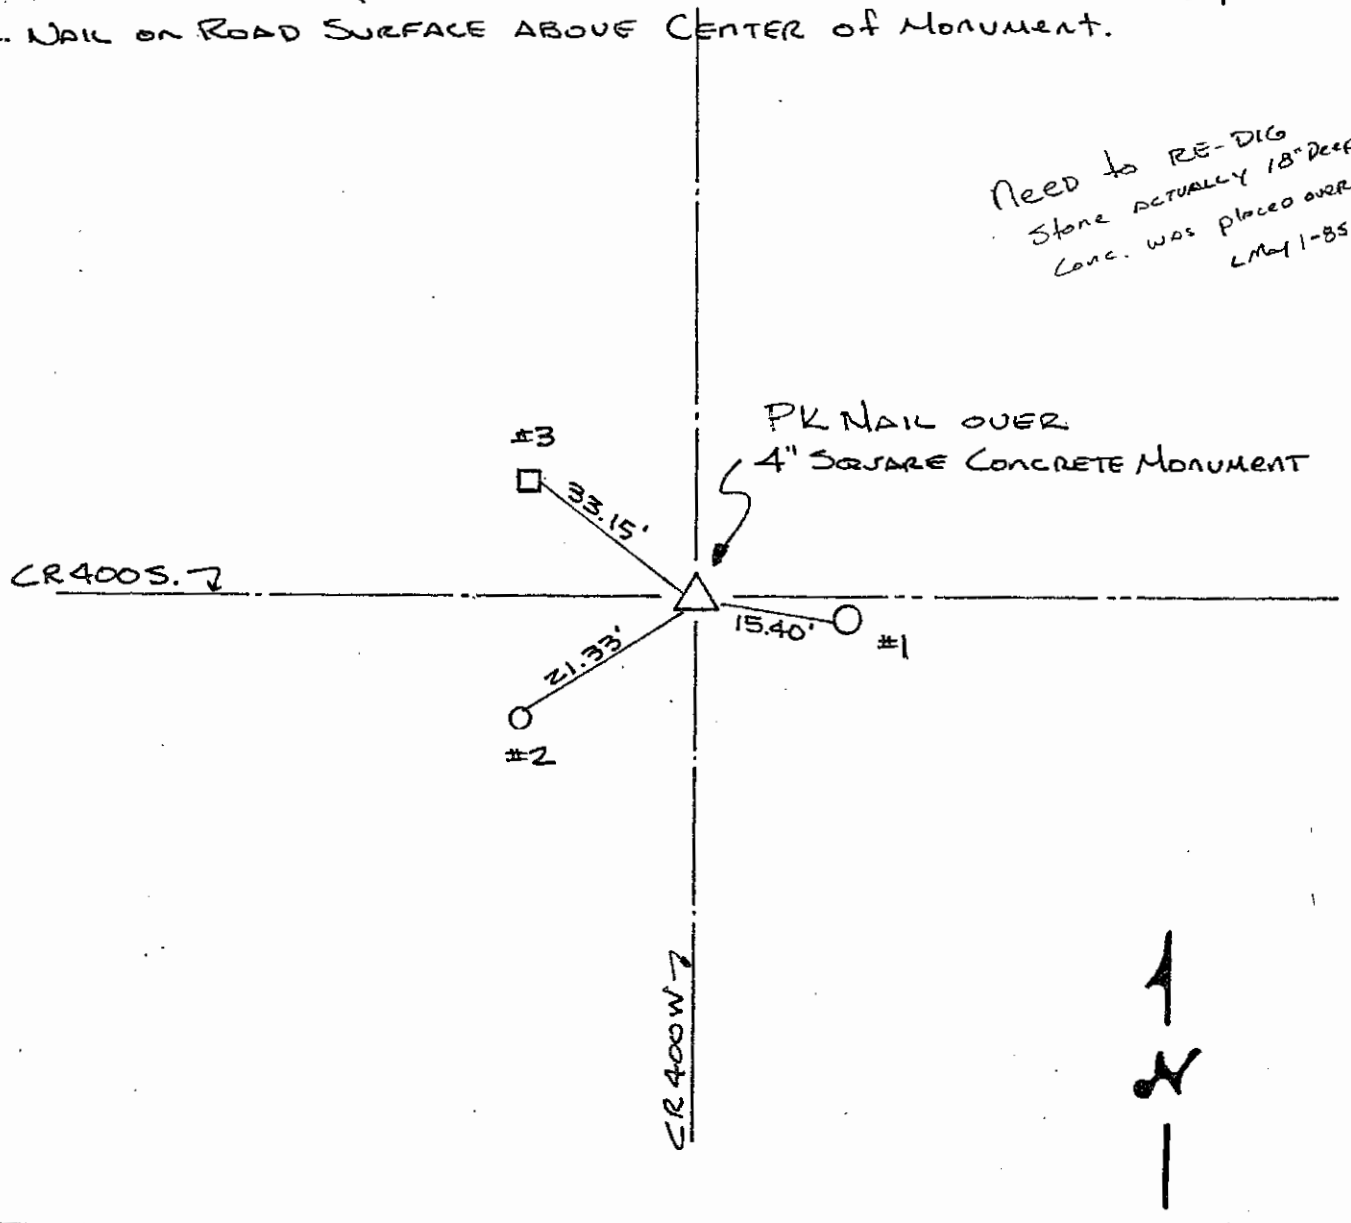 . Nail on Road Surface above Center of Monument.
Need to RE-DIG
Stone actually 18" Deep
Conc. was placed over
May 1-85
PK Nail over
4" Square Concrete Monument
#3
33.15'
CR400S.
15.40'
#1
21.33'
#2
CR 400W
N